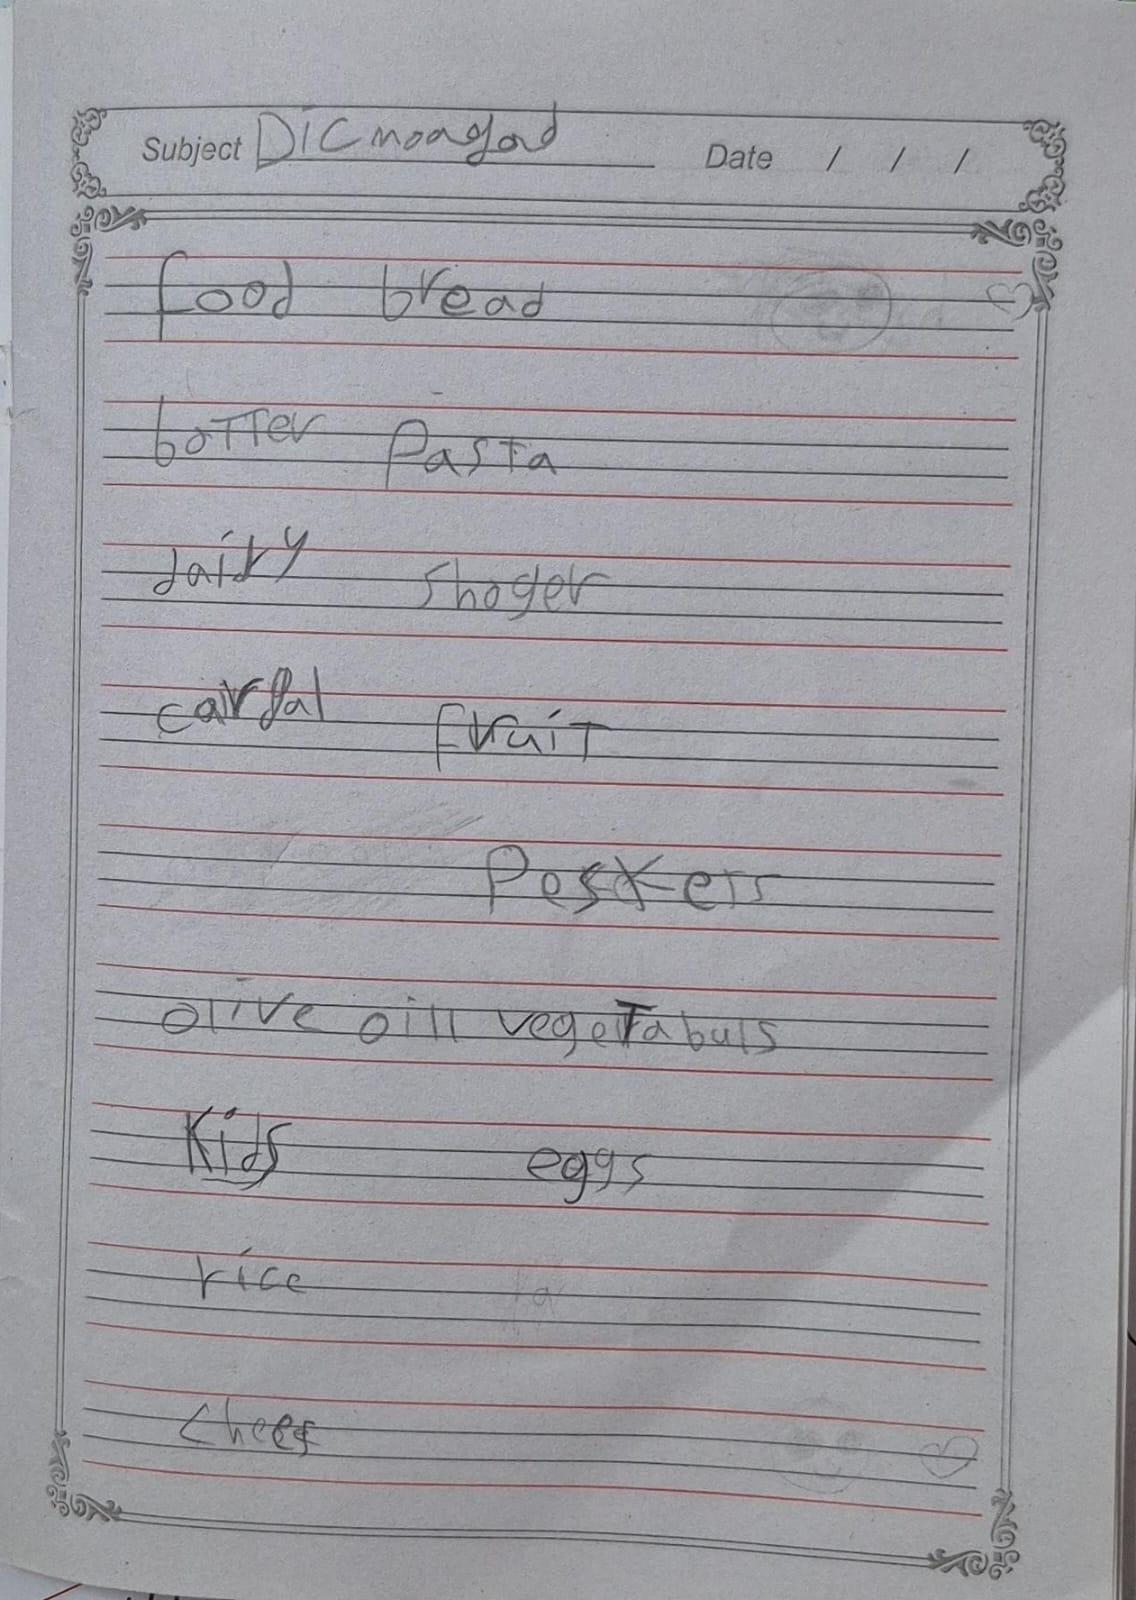 Subject Dicmoagod Date / / /
food bread
botter Pasta
dairy shoger
cairfal fruit
Peskers
olive oill vegeTabuls
Kids eggs
rice
chees